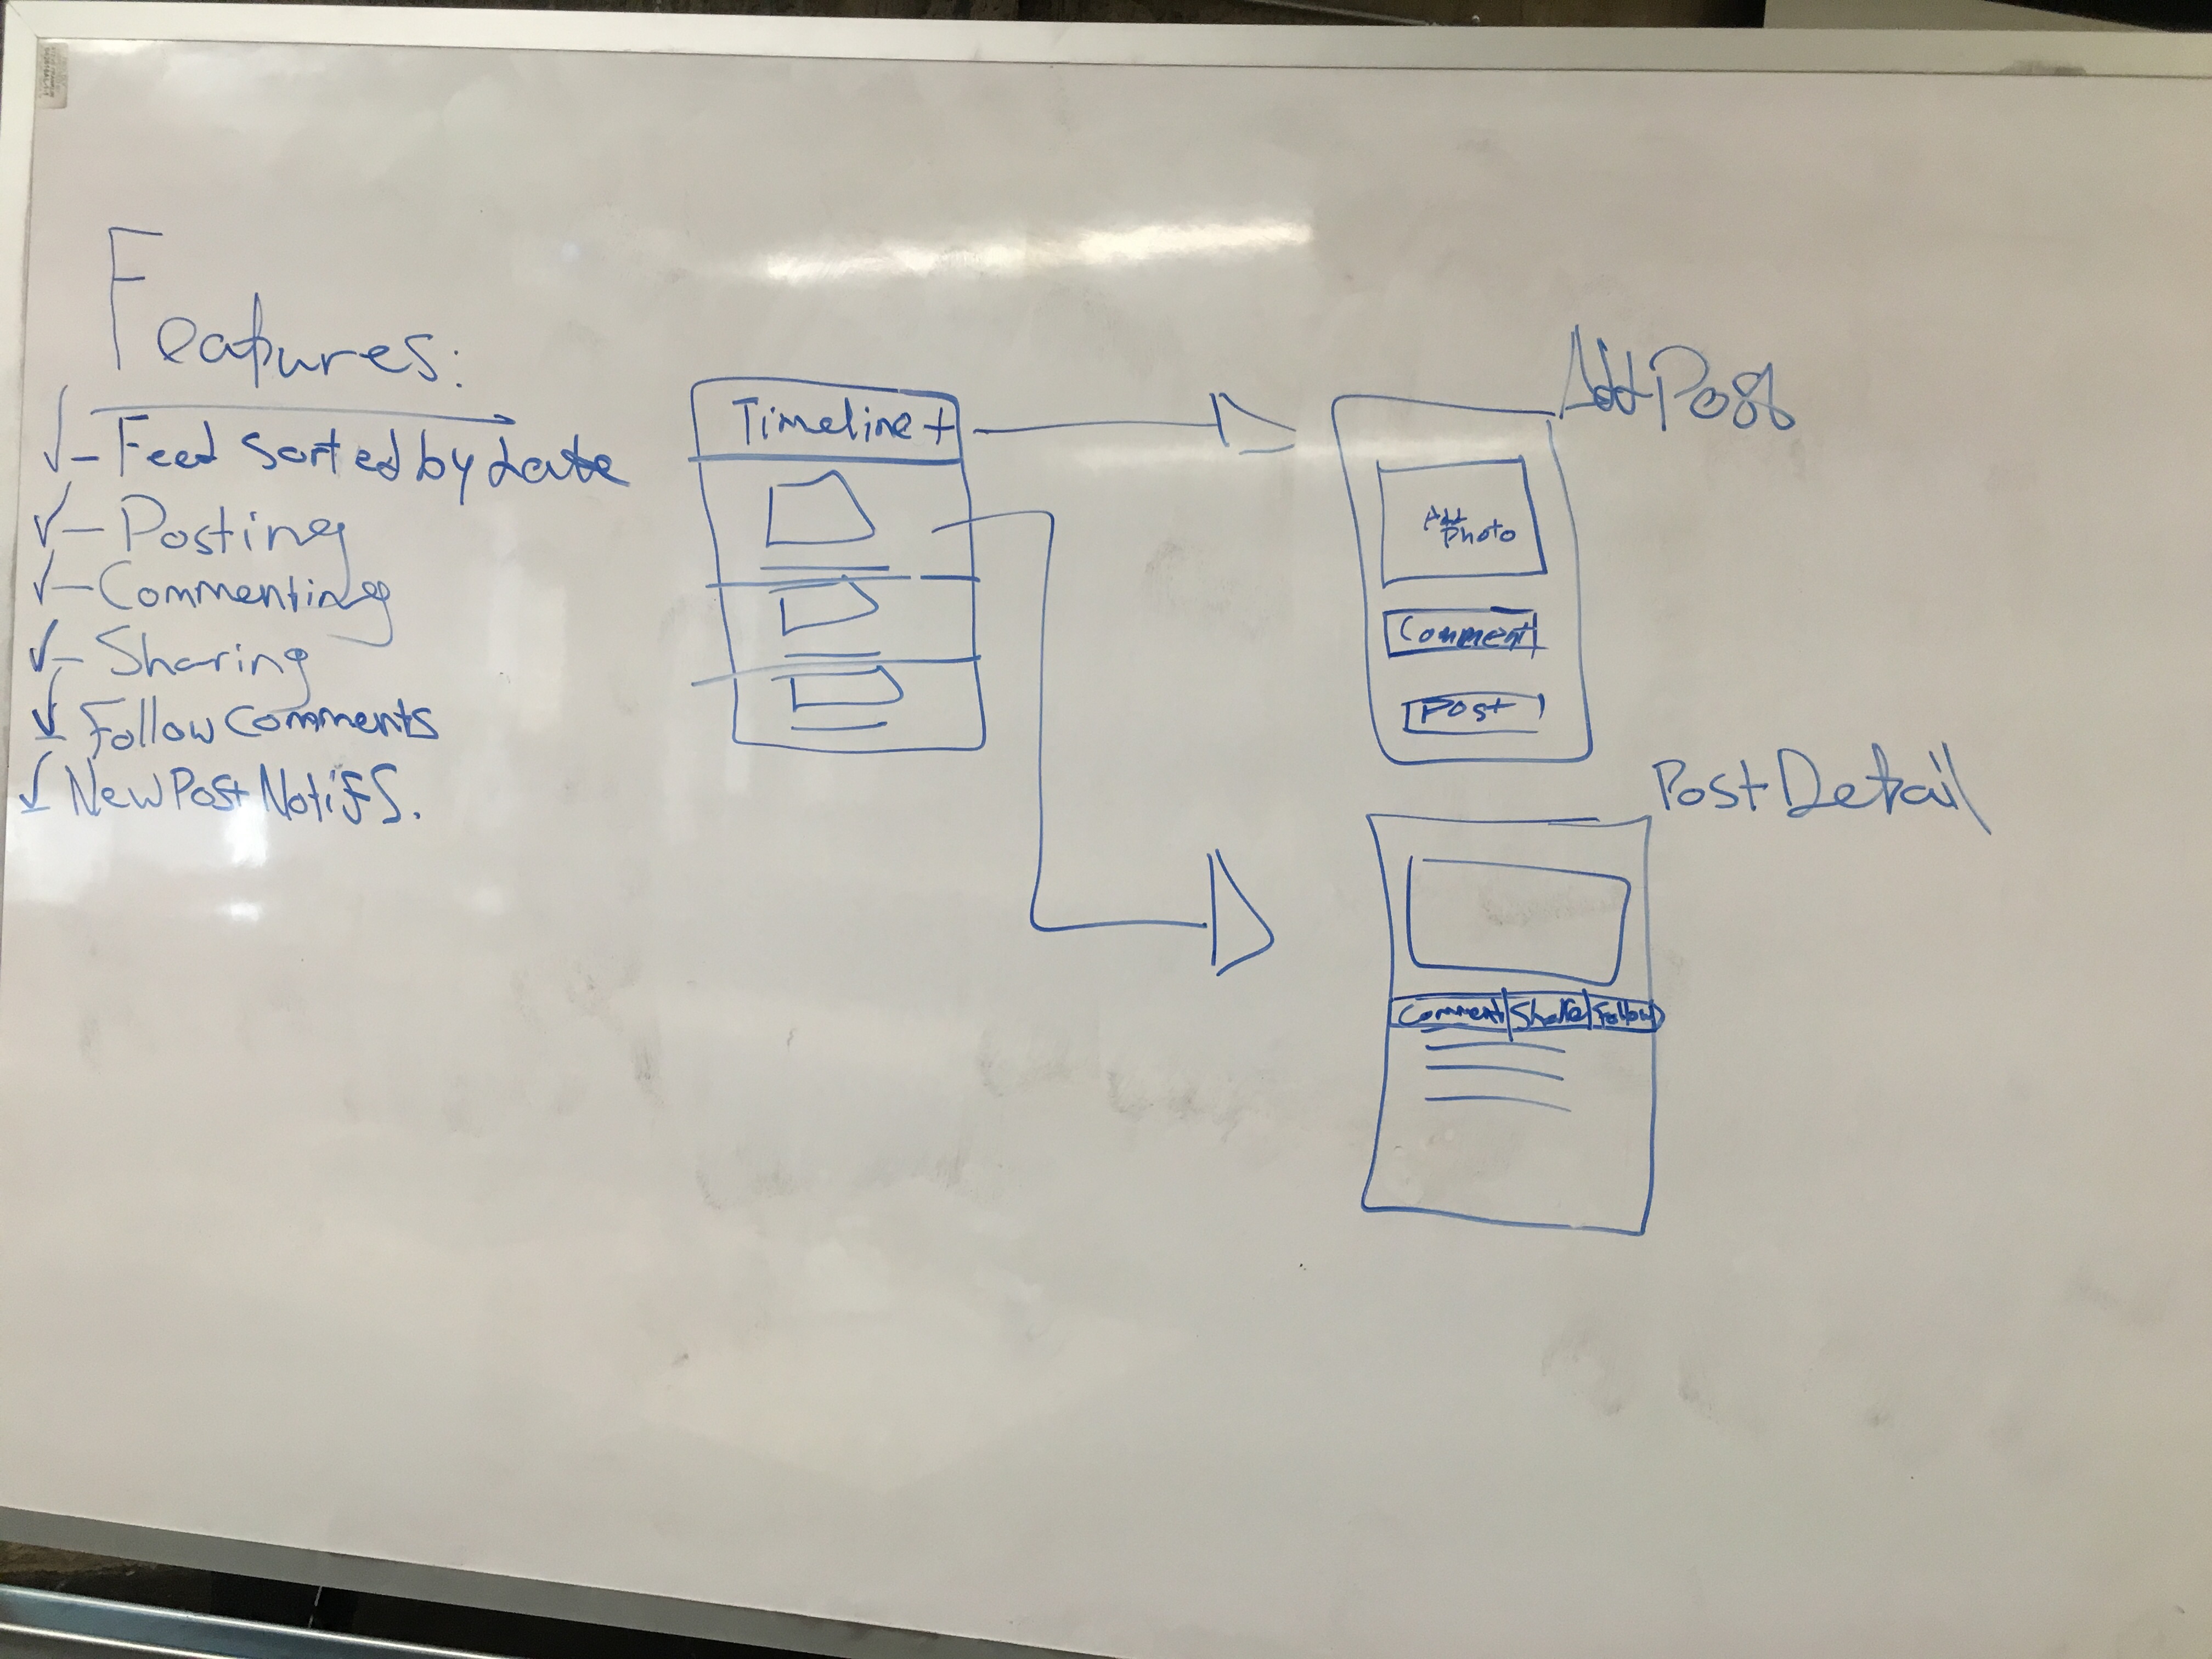 Features:
- Feed sorted by date
- Posting
- Commenting
- Sharing
- Follow Comments
- New Post Notifs.
Timeline +
Add Post
Add
Photo
Comment
Post
Post Detail
Comment Share Follow